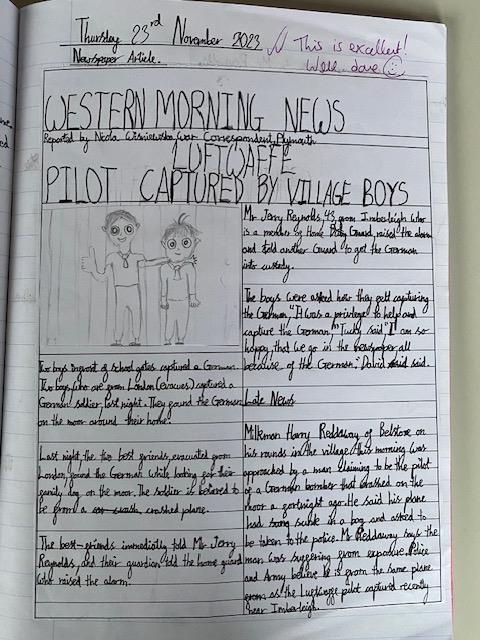 Thursday 23rd November 2023
This is excellent!
Well done
Newspaper Article.
WESTERN MORNING NEWS
Reported by Nicola Wisniewska, War Correspondent, Plymouth
LUFTWAFFE
PILOT CAPTURED BY VILLAGE BOYS
Two boys in front of school gates captured a German.
Two boys, who are from London (evacues) captured a
German soldier, last night. They found the German
on the moor around their home.
Last night, the two best friends, evacuated from
London, found the German while looking for their
family dog on the moor. The soldier is believed to
be from a crashed plane.
The best-friends immediatly told Mr Jerry
Reynolds, and their guardian told the home guard
who raised the alarm.
Mr Jerry Reynolds, 43, from Imberleigh who
is a member in Home Guard, raised the alarm
and told another Guard to get the German
into custody.
The boys were asked how they felt capturing
the German, "It was a privilege to help and
capture the German," Tucky said. "I am so
happy, that we go in the newspaper all
because of the German." David said.
Late News
Milkman Harry Reddaway of Belstone on
his rounds in the village this morning was
approached by a man claiming to be the pilot
of a German bomber that crashed on the
moor a fortnight ago. He said his plane
had sunk in a bog and asked to
be taken to the police. Mr Reddaway says the
man was suffering from exposure. Police
and Army believe he is from the same plane
as the Luftwaffe pilot captured recently
near Imberleigh.